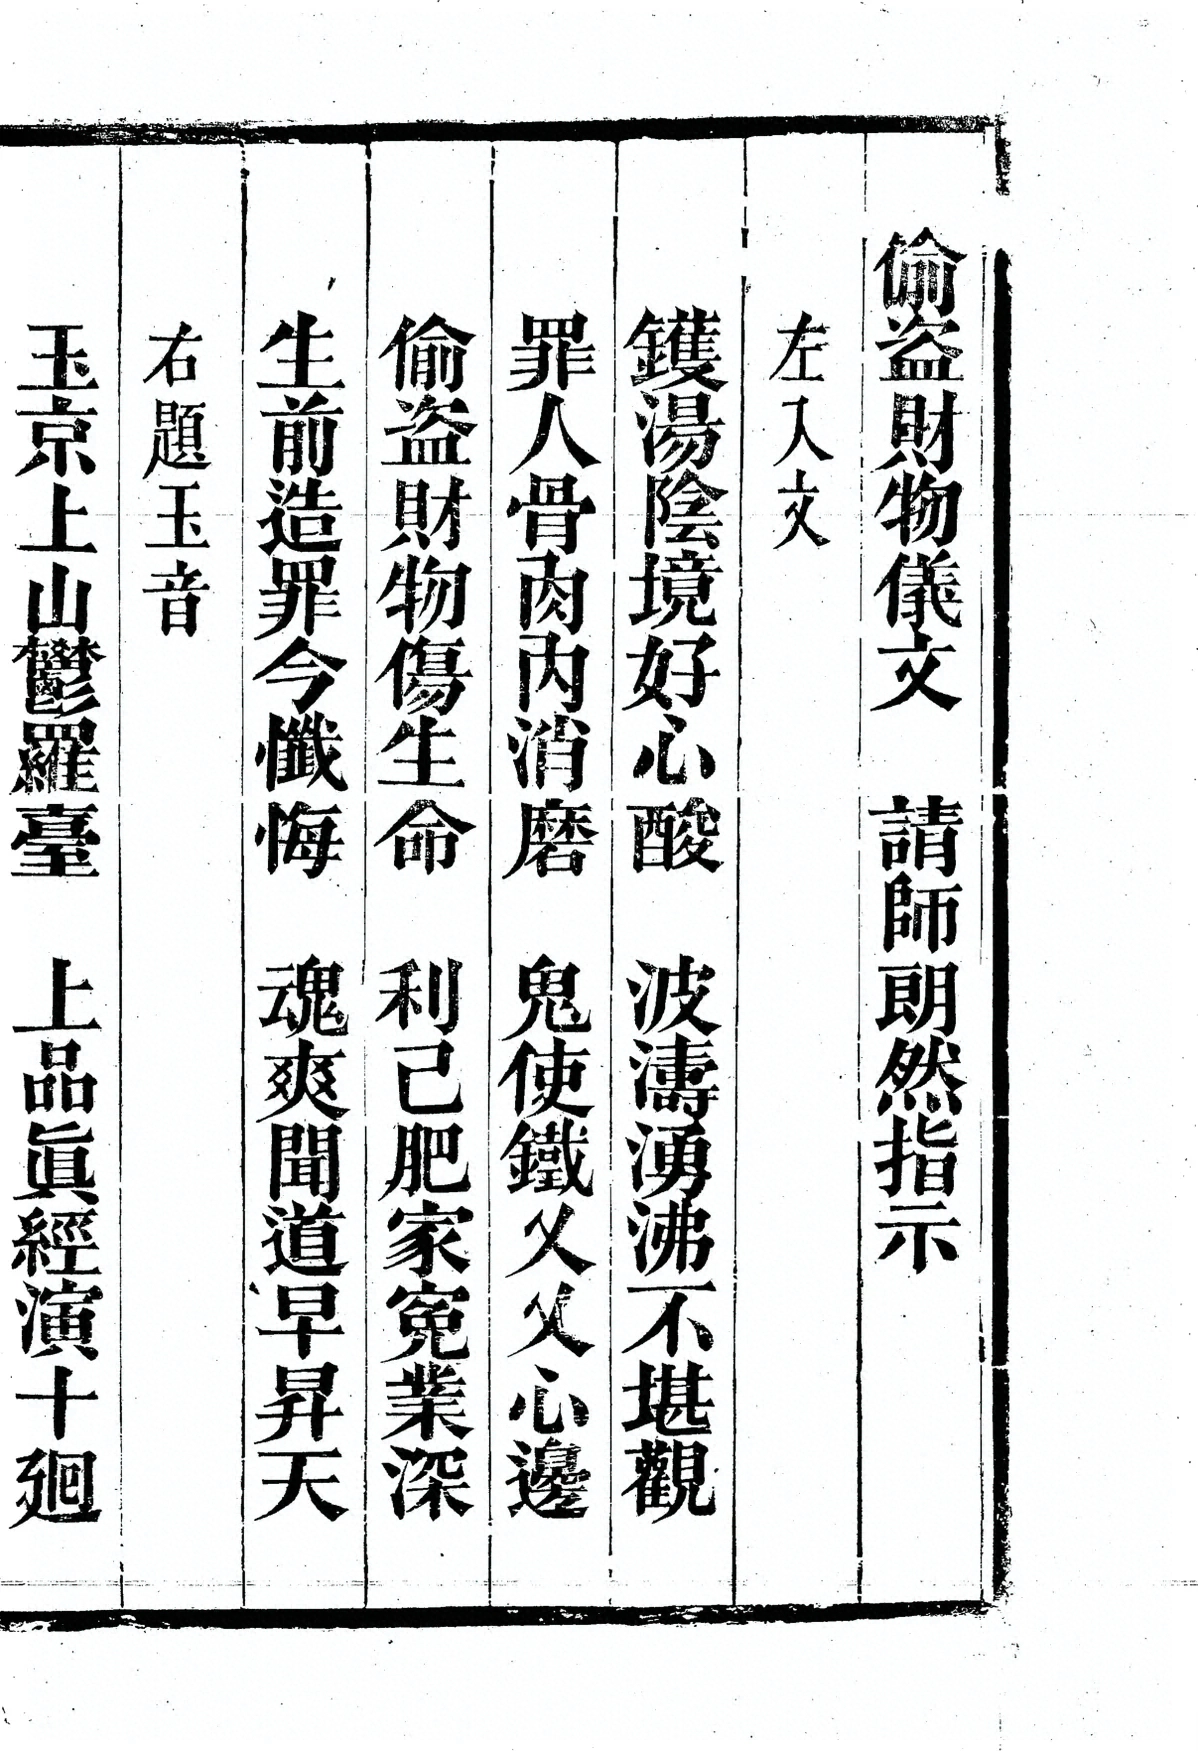 偷盗財物儀文　請師朗然指示
左入文
鑊湯陰境好心酸　波濤湧沸不堪觀
罪人骨肉内消磨　鬼使鐵叉叉心邊
偷盗財物傷生命　利己肥家寃業深
生前造罪今懺悔　魂爽聞道早昇天
右題玉音
玉京上山鬱羅臺　上品眞經演十廻